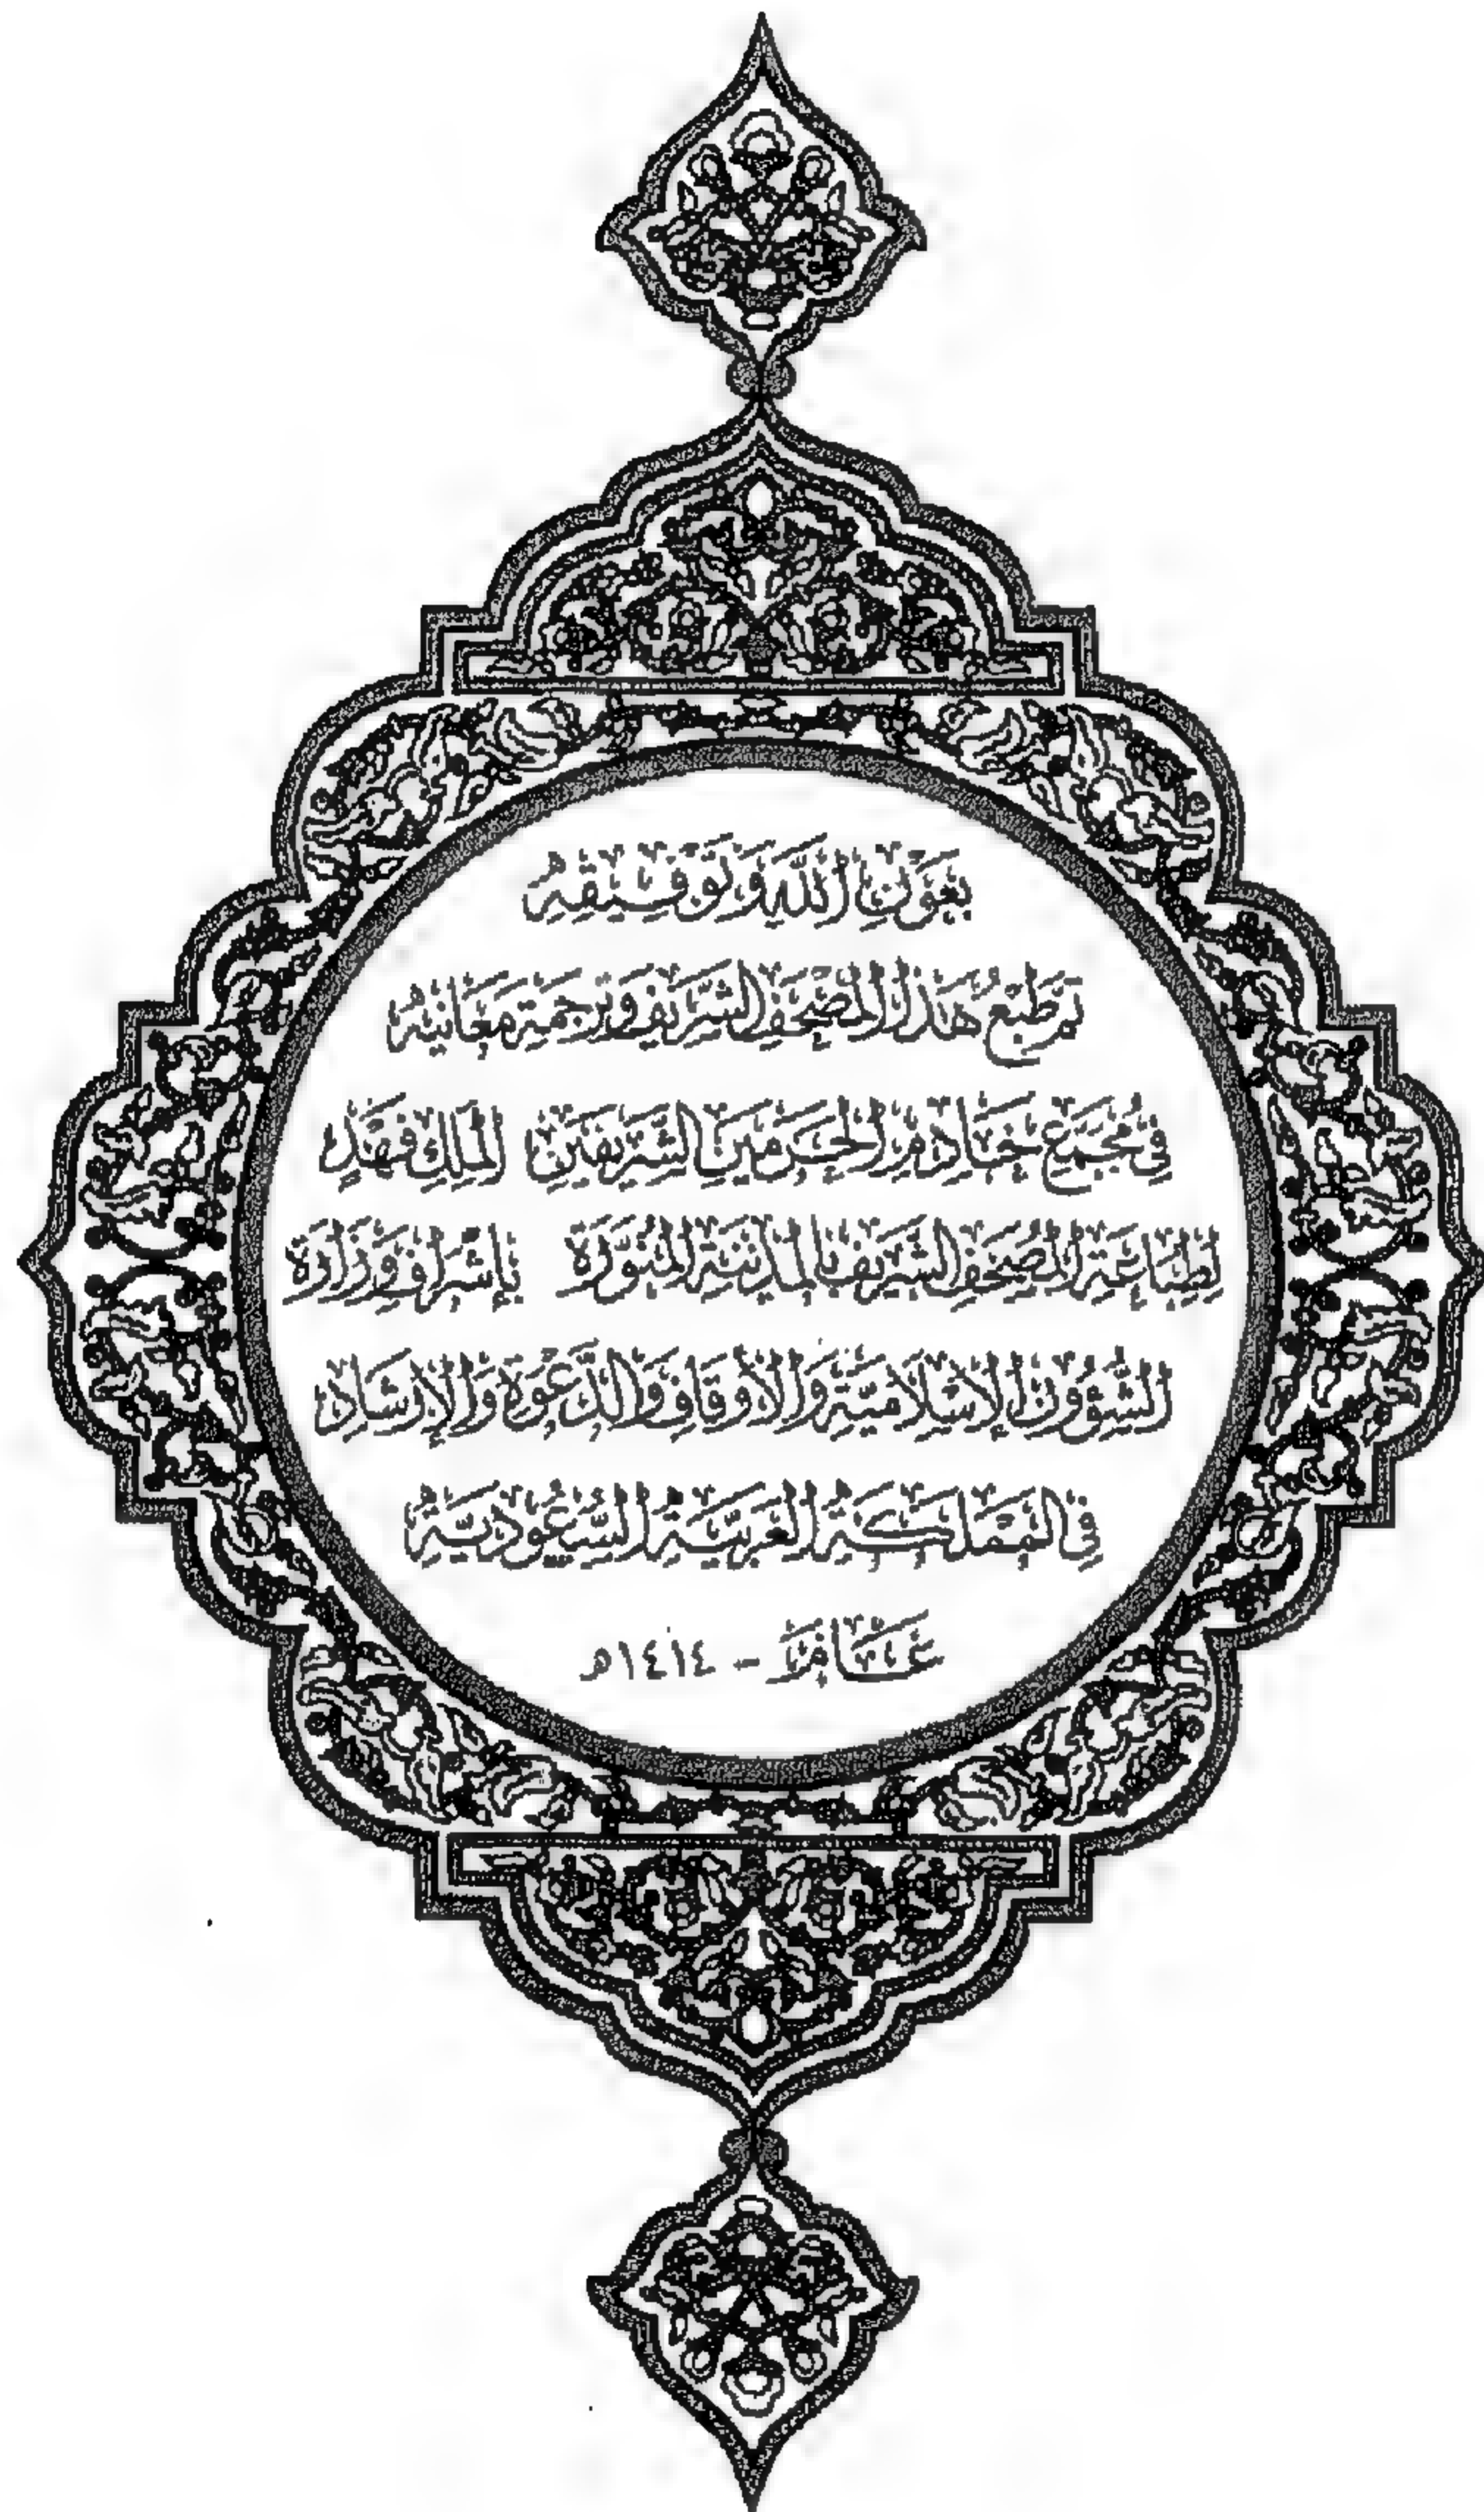 بِعَوْنِ اللَّهِ وَتَوْفِيقِهِ
تَمَّ طَبْعُ هَذَا الْمُصْحَفِ الشَّرِيفِ وَتَرْجَمَةِ مَعَانِيهِ
فِي مُجَمَّعِ خَادِمِ الْحَرَمَيْنِ الشَّرِيفَيْنِ الْمَلِكِ فَهْدٍ
لِطِبَاعَةِ الْمُصْحَفِ الشَّرِيفِ بِالْمَدِينَةِ الْمُنَوَّرَةِ بِإِشْرَافِ وَزَارَةِ
الشُّؤُونِ الْإِسْلَامِيَّةِ وَالْأَوْقَافِ وَالدَّعْوَةِ وَالْإِرْشَادِ
فِي الْمَمْلَكَةِ الْعَرَبِيَّةِ السُّعُودِيَّةِ
عَامَ - ١٤١٤ه